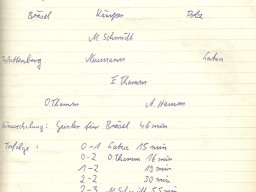 Bräsel Kämper Polz
M. Schmidt
Wuttenberg Naumann Caben
E Thamm
O. Thamm A. Hamm
Einwechslung: Geuler für Bräsel 46 min
Torfolge: 0-1 Caben 15 min
0-2 O Thamm 16 min
1-2 19 min
2-2 30 min
2-3 M Schmidt 55 min